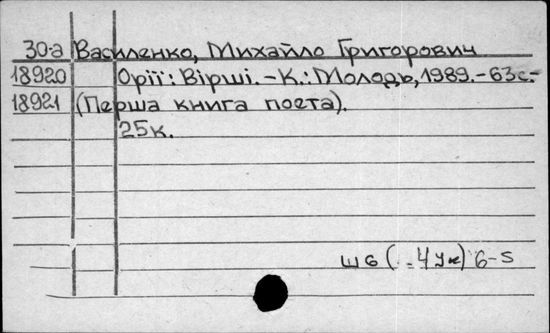 30-а Василенко, Михайло Григорович
18920 Орії: Вірші. - К.: Молодь, 1989. - 63с.-
18921 (Перша книга поета).
25к.
Ш6 (4Ук) 6-5